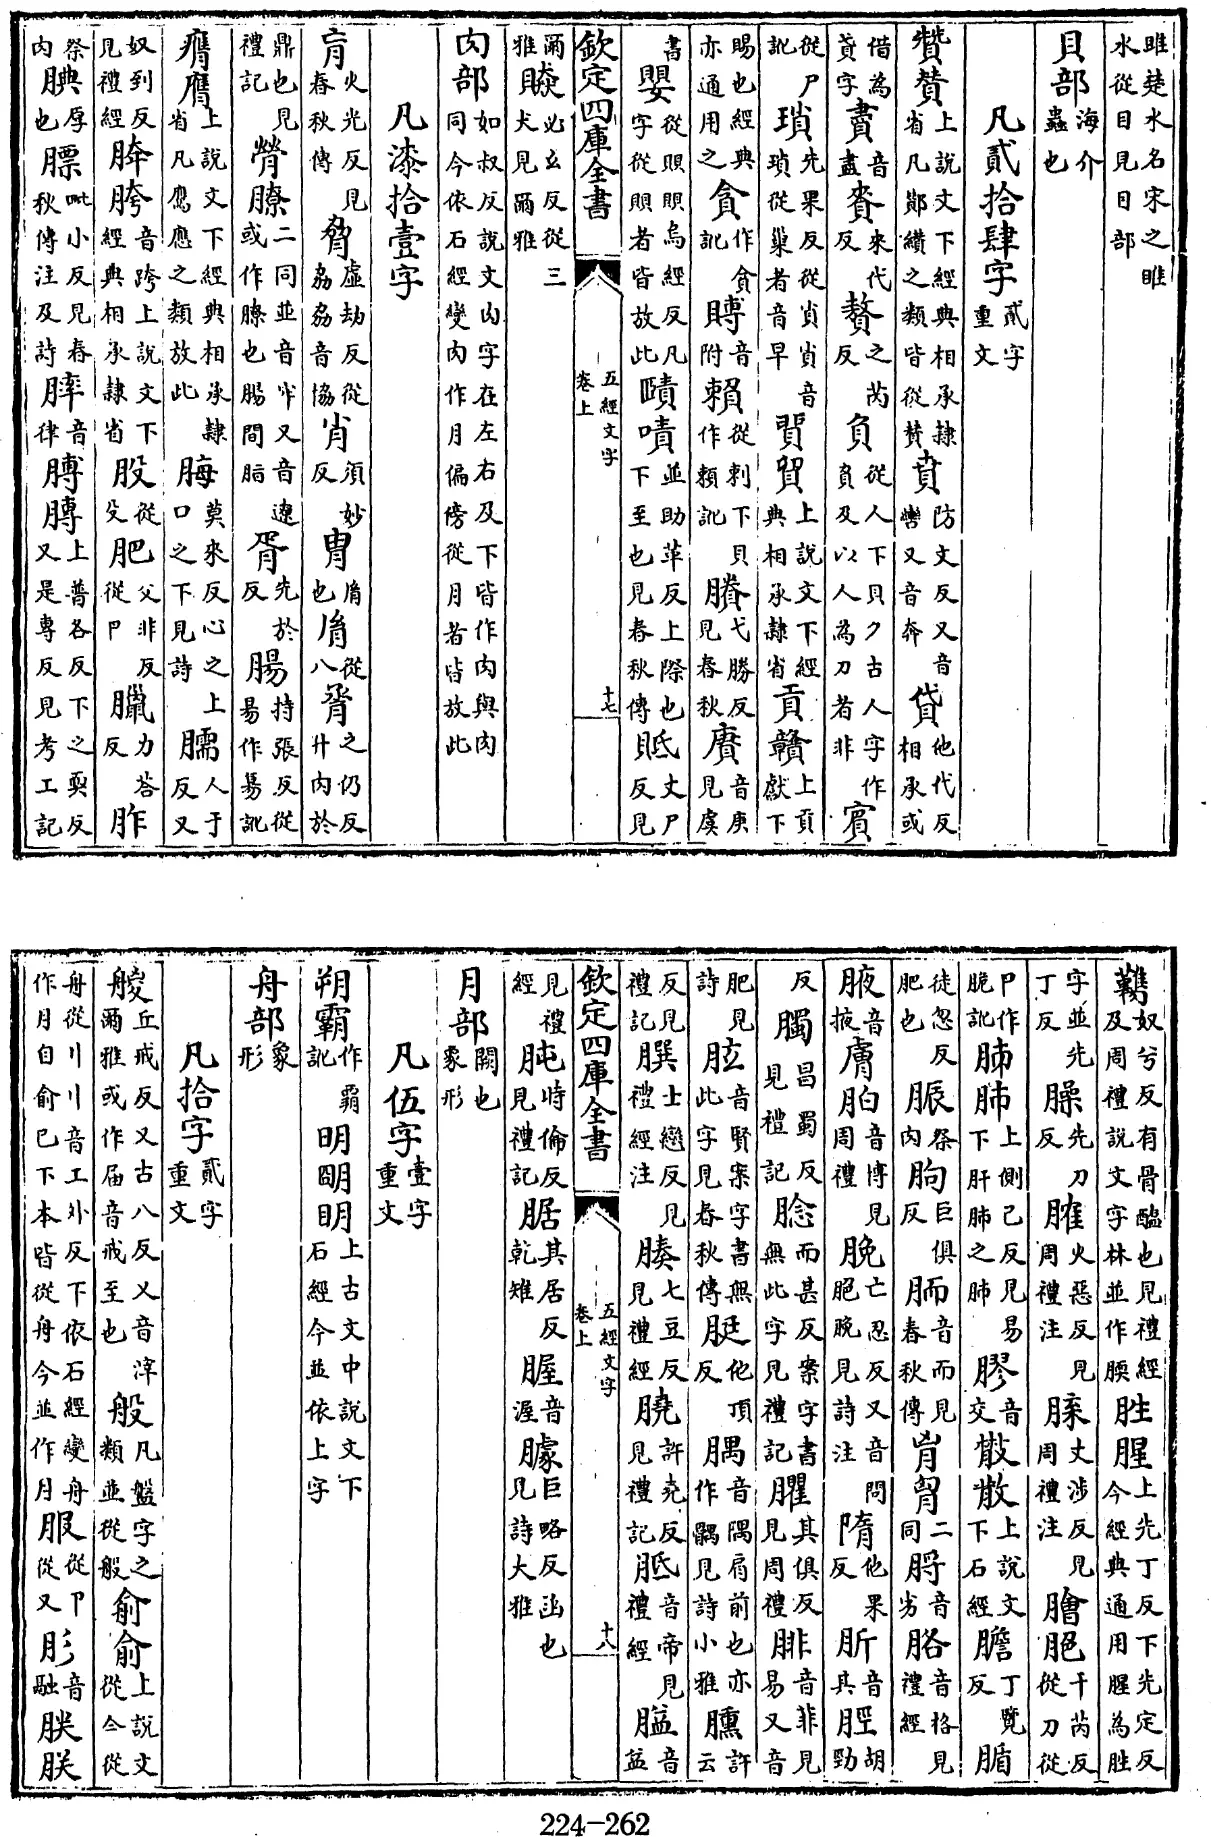 雎楚水名宋之睢水從目見目部
貝部海介蟲也
凡貳拾肆字貳字重文
贊賛上說文下經典相承隸省凡鄼纘之類皆從賛賁防文反又音又音奔貸他代反相承或
借為貣字賮音盡賚來代反贅之芮反負從人下貝𠂊古人字作負及以人為刀者非賓
從尸訛瑣先果反從𧴪𧴪音瑣從巢者音早貿貿上說文下經典相承隸省貢贛上貢獻下
賜也經典亦通用之貪作貪訛賻音附賴從剌下貝作頼訛賸弋勝反見春秋賡音庚見虞
書嬰從賏賏烏經反凡字從賏者皆放此賾嘖並助革反上際也下至也見春秋傳貾丈尸反見
欽定四庫全書
五經文字卷上
十七
爾雅贆必幺反從三犬見爾雅
肉部如叔反說文肉字在左右及下皆作肉與肉同今依石經變肉作月偏傍從月者皆放此
凡漆拾壹字
肓火光反見春秋傳脅虛劫反從劦劦音協肖須妙反胄胤也胤從八脀之仍反升肉於
鼎也見禮記膋膫二同並音聊又音遼或作膫也腸間脂胥先於反腸持張反從昜作昜訛
膺上說文下經典相承隸省凡鷹應之類放此脢莫來反心之上口之下見詩臑人于反又
奴到反見禮經胯音跨上說文下經典相承隸省股從殳肥父非反從卪臘力荅反胙
祭肉也腆厚也膘毗小反見春秋傳注及詩膟音律膊膞上普各反下之耎反又是專反見考工記
奴兮反有骨醢也見禮經及周禮說文字林並作腝胜腥上先丁反下先定反今經典通用腥為胜
字並先丁反臊先刀反臛火惡反見周禮注䐑丈涉反見周禮注膾脃千芮反從刀從
卪作脆訛胏肺上側己反見易下肝肺之肺膠音交散上說文下石經膽丁覽反腯
徒忽反肥也脤祭肉朐巨俱反胹音而見春秋傳肯二同脟音劣胳音格見禮經
腋音掖膚胉音博見周禮脕亡忍反又音問脃晚見詩注隋他果反肵音其脛胡勁
反臅昌蜀反見禮記腍而甚反案字書無此字見禮記臞其俱反見周禮腓音菲見易又音
肥見詩胘音賢案字書無此字見春秋傳脡他頂反腢音隅肩前也亦作髃見詩小雅臐許云
反見禮記䐣士戀反見禮經注腠七豆反見禮經膮許堯反見禮記胝音帝見禮經膉音益
欽定四庫全書
五經文字卷上
十八
見禮經肫時倫反見禮記腒其居反乾雉腛音渥臄巨略反函也見詩大雅
月部闕也象形
凡伍字壹字重文
朔霸作覇訛明朙眀上古文中說文下石經今並依上字
舟部象形
凡拾字貳字重文
艐丘戒反又古八反又音滓爾雅或作届音戒至也般凡盤字之類並從般俞上說文從亼從
舟從巜巜音工外反下依石經變舟作月自俞已下本皆從舟今並作月服從卪從又肜音融朕
224-262